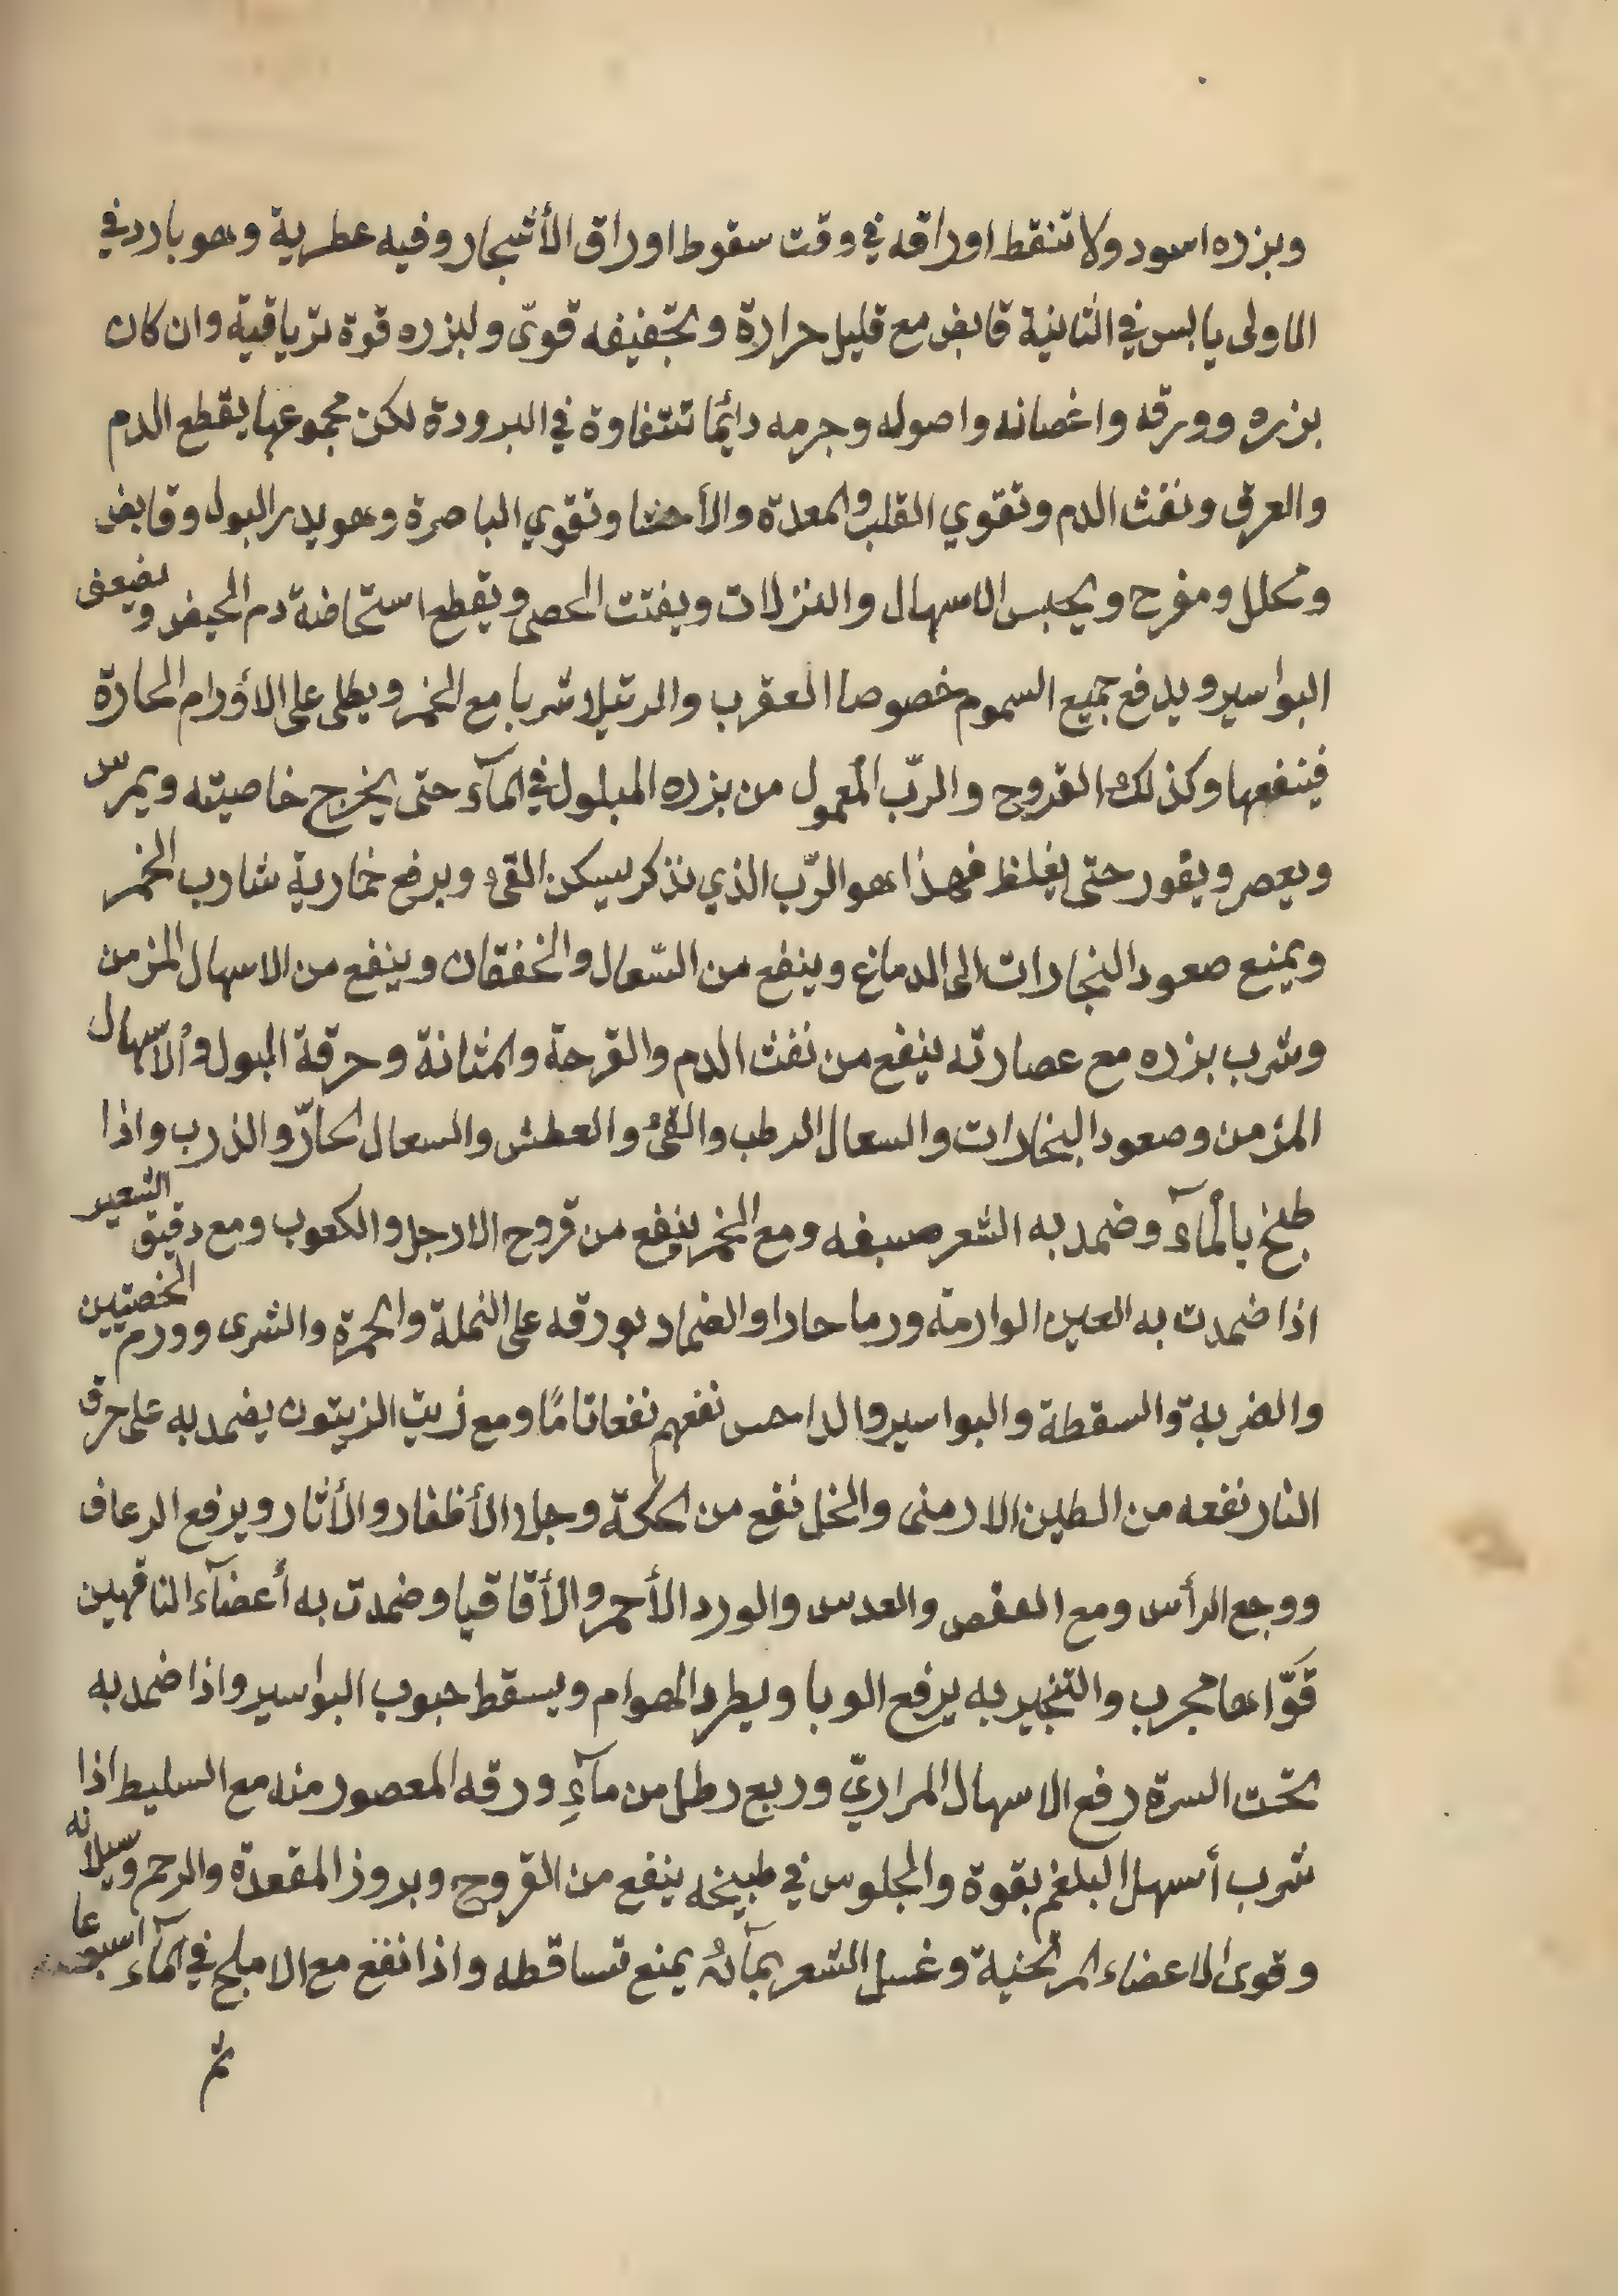 وبزره اسود ولا تنقط اوراقه في وقت سقوط اوراق الأشجار وفيه عطرية وهو بارد في
الاولى يابس في الثانية قابض مع قليل حرارة وتجفيفه قوىّ ولبزره قوة ترياقية وان كان
بزره وورقه واغصانه واصوله وجرمه دائما تتفاوة في البرودة لكن مجموعها يقطع الدم
والعرق ونفث الدم وتقوي القلب والمعدة والأحشا وتقوي الباصرة وهو يدر البول وقابض
ومحلل ومفرح ويحبس الاسهال والنزلات ويفتت الحصى ويقطع استحاضة دم الحيض ويضيعف
البواسير ويدفع جميع السموم خصوصا العقرب والرتيلا شربا مع الخمر ويطلى على الأورام الحارة
فينفعها وكذلك القروح والربّ المعمول من بزره المبلول في المآء حتى يخرج خاصيته ويمرس
ويعصر ويقور حتى يغلظ فهذا هو الربّ الذي نذكر يسكن القئ ويرفع خمارية شارب الخمر
ويمنع صعود البخارات الى الدماغ وينفع من السّعال والخفقان وينفع من الاسهال المزمن
وشرب بزره مع عصارته ينفع من نفث الدم والقرحة والمثانة وحرقة البول والأسهال
المزمن وصعود البخارات والسعال الرطب والقئ والعطش والسعال الحارّ والذرب واذا
طبخ بالمآء وضمد به الشعر صبغه ومع الخمر ينفع من قروح الارجل والكعوب ومع دقيق الشعير
اذا ضمدت به العين الوارمة ورما حارا والضماد بورقه على النملة والحمرة والشرى وورم الخصتيين
والضربة والسقطة والبواسير والداحس نفعهم نفعا تامًا ومع زيت الزيتون يضمد به على حرق
النار نفعه من الطين الارمنى والخل نفع من الحكة وجلا الأظفار والأثار ويرفع الرعاف
ووجع الرأس ومع العفص والعدس والورد الأحمر والأقاقيا وضمدت به أعضآء الناقهين
قَوّاها مجرب والتبخير به يرفع الوبا ويطرد الهوام ويسقط حبوب البواسير واذا ضمد به
تحت السرة رفع الاسهال المراريّ وربع رطل من مآءِ ورقه المعصور منه مع السليط اذا
شرب أسهل البلغم بقوة والجلوس في طبيخه ينفع من القروح وبروز المقعدة والرحم وسيلانه
وقوى الاعضاء المرتخية وغسل الشعر بمآئهُ يمنع تساقطه واذا نقع مع الاملج في المآء اسبوعا
ثم